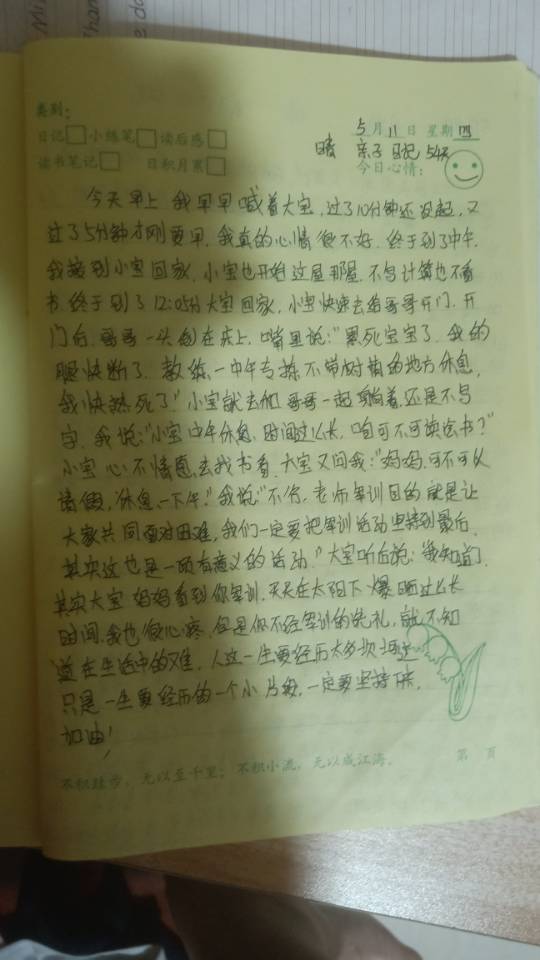 类别：
5月11日 星期四
日记 小练笔 读后感
晴 亲子日记 54天
读书笔记 日积月累 今日心情：
今天早上我早早喊着大宝，过了10分钟还没起，又
过了5分钟才刚要早，我真的心情很不好。终于到了中午，
我接到小宝回家，小宝也开始这屋那屋，不写计算也不看
书，终于到了12:05分大宝回家，小宝快速去给哥哥开门，开
门后，哥哥一头倒在床上，嘴里说："累死宝宝了，我的
腿快断了，教练一中午专拣不带树植的地方休息，
我快热死了"小宝就去他哥哥一起躺着，还是不写
字，我说："小宝中午休息，时间这么长，咱可不可读读书？"
小宝心不情愿去找书看，大宝又问我："妈妈，可不可以
请假，休息一下午。"我说："不行，老师军训目的就是让
大家共同面对困难，我们一定要把军训活动坚持到最后，
其实这也是一项有意义的活动。"大宝听后说："我知道了，
其实大宝妈妈看到你军训，天天在太阳下爆晒这么长
时间，我也很心疼，但是你不经军训的洗礼，就不知
道在生活中的艰难，人这一生要经历太多
只是一生要经历的一个小片段，一定要坚持下来，
加油！
不积跬步，无以至千里；不积小流，无以成江海。 第 页